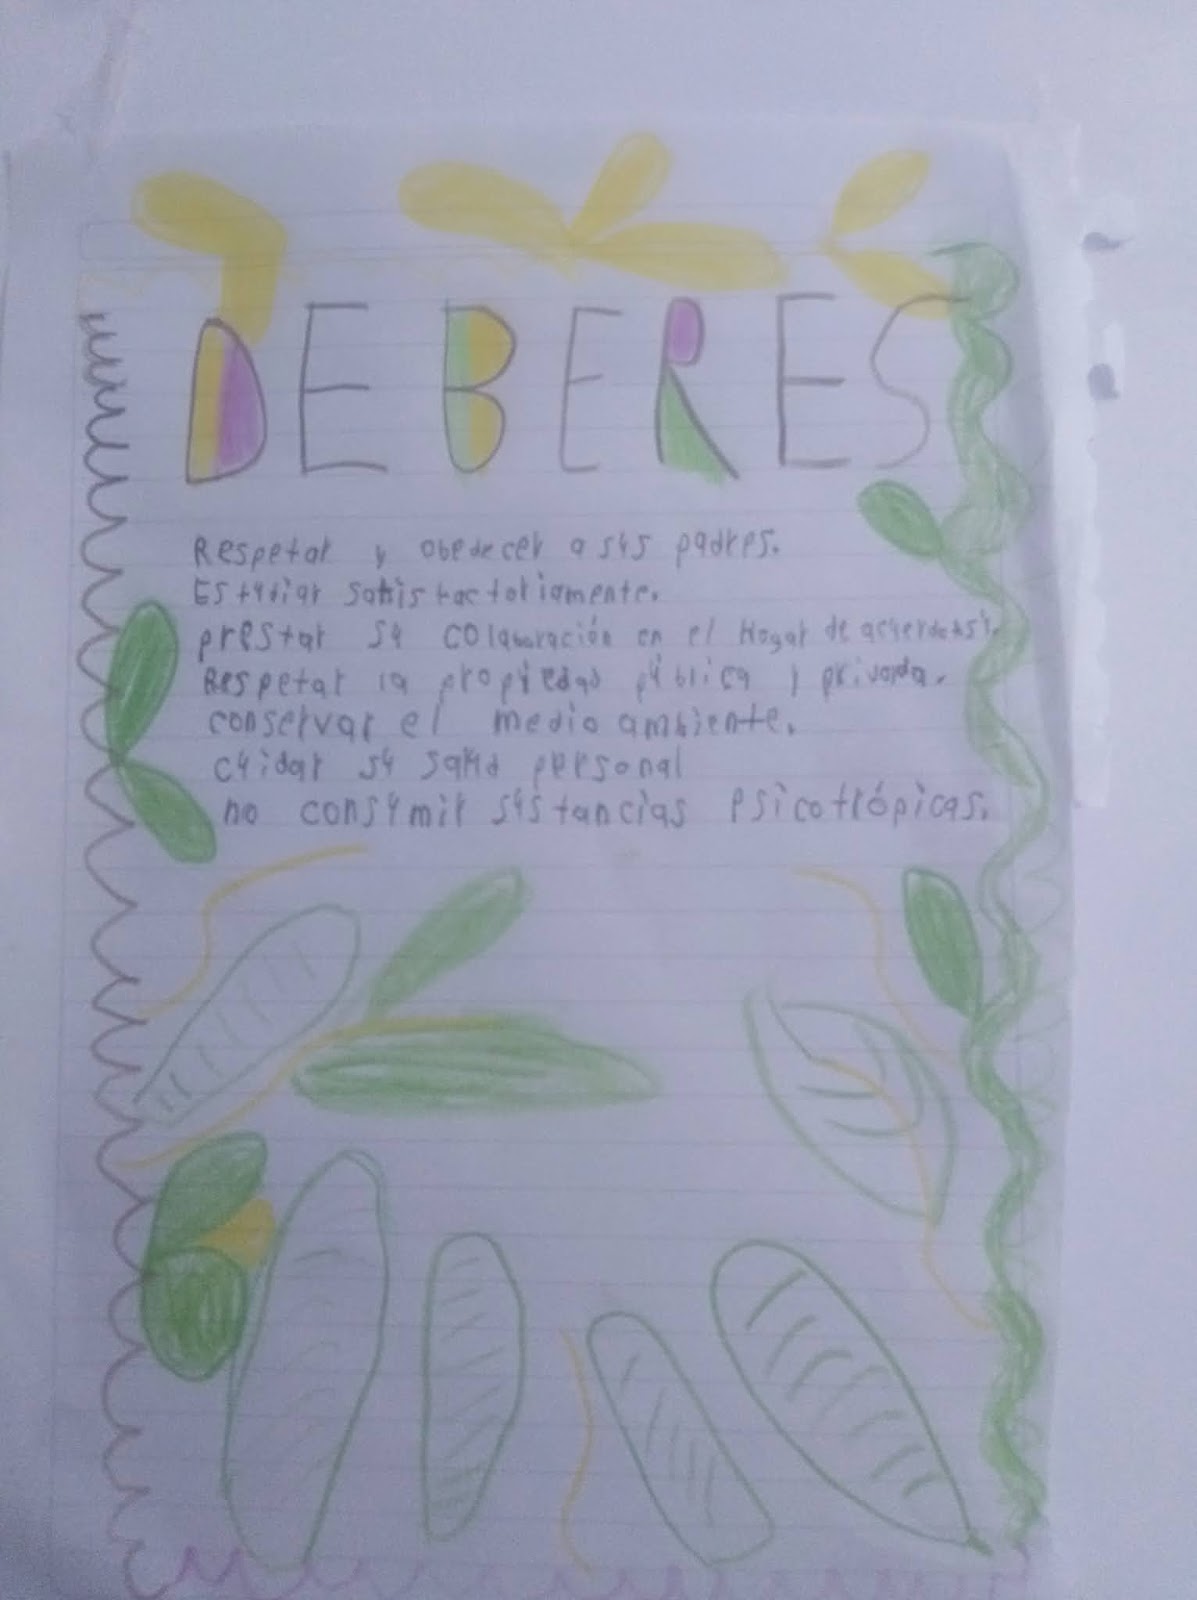 DEBERES
Respetar y obedecer a sus padres.
Estudiar satisfactoriamente.
prestar su colaboración en el Hogar de
Respetar la propiedad pública y privada.
conservar el medio ambiente.
cuidar su salud personal
no consumir sustancias psicotrópicas.